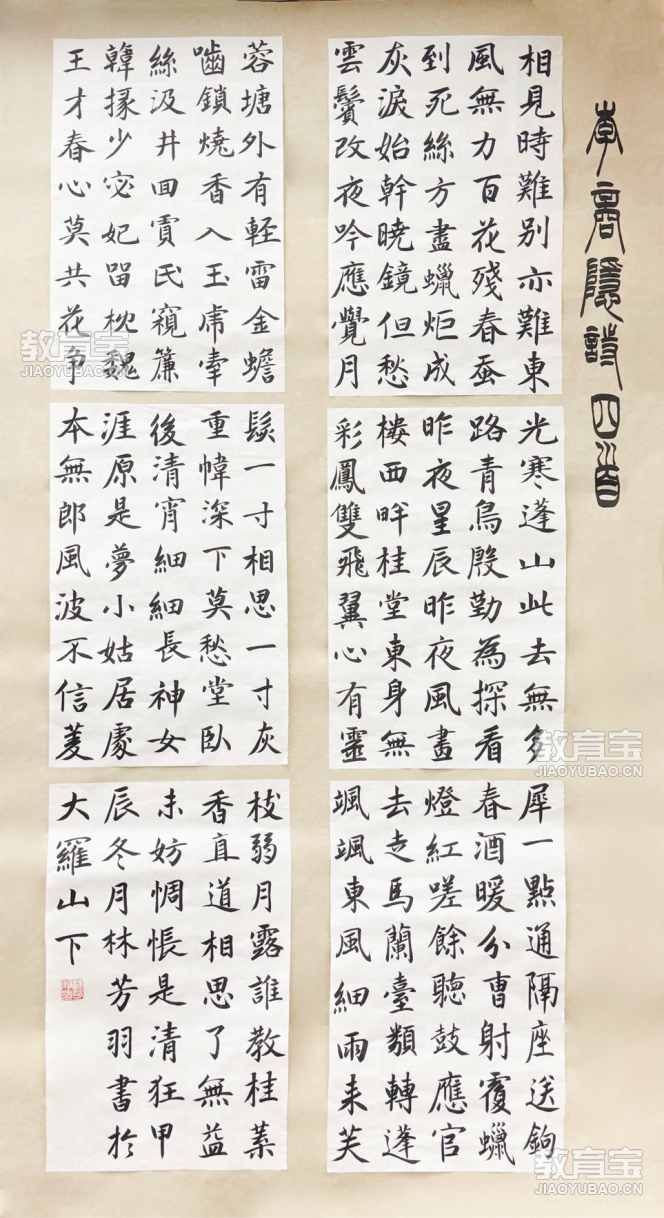 李商隱詩四首
相見時難别亦難東
風無力百花殘春蚕
到死絲方盡蠟炬成
灰淚始幹曉鏡但愁
雲鬢改夜吟應覺月
光寒蓬山此去無多
路青鳥殷勤為探看
昨夜星辰昨夜風畫
樓西畔桂堂東身無
彩鳳雙飛翼心有靈
犀一點通隔座送鉤
春酒暖分曹射覆蠟
燈紅嗟餘聽鼓應官
去走馬蘭臺類轉蓬
颯颯東風細雨来芙
蓉塘外有軽雷金蟾
嚙鎖燒香入玉虎牽
絲汲井回賈氏窺簾
韓掾少宓妃留枕魏
王才春心莫共花争
髮一寸相思一寸灰
重幃深下莫愁堂臥
後清宵細細長神女
涯原是夢小姑居處
本無郎風波不信菱
枝弱月露誰教桂葉
香直道相思了無益
未妨惆悵是清狂甲
辰冬月林芳羽書於
大羅山下
教育宝
JIAOYUBAO.CN
教育宝
JIAOYUBAO.CN
教育宝
JIAOYUBAO.CN